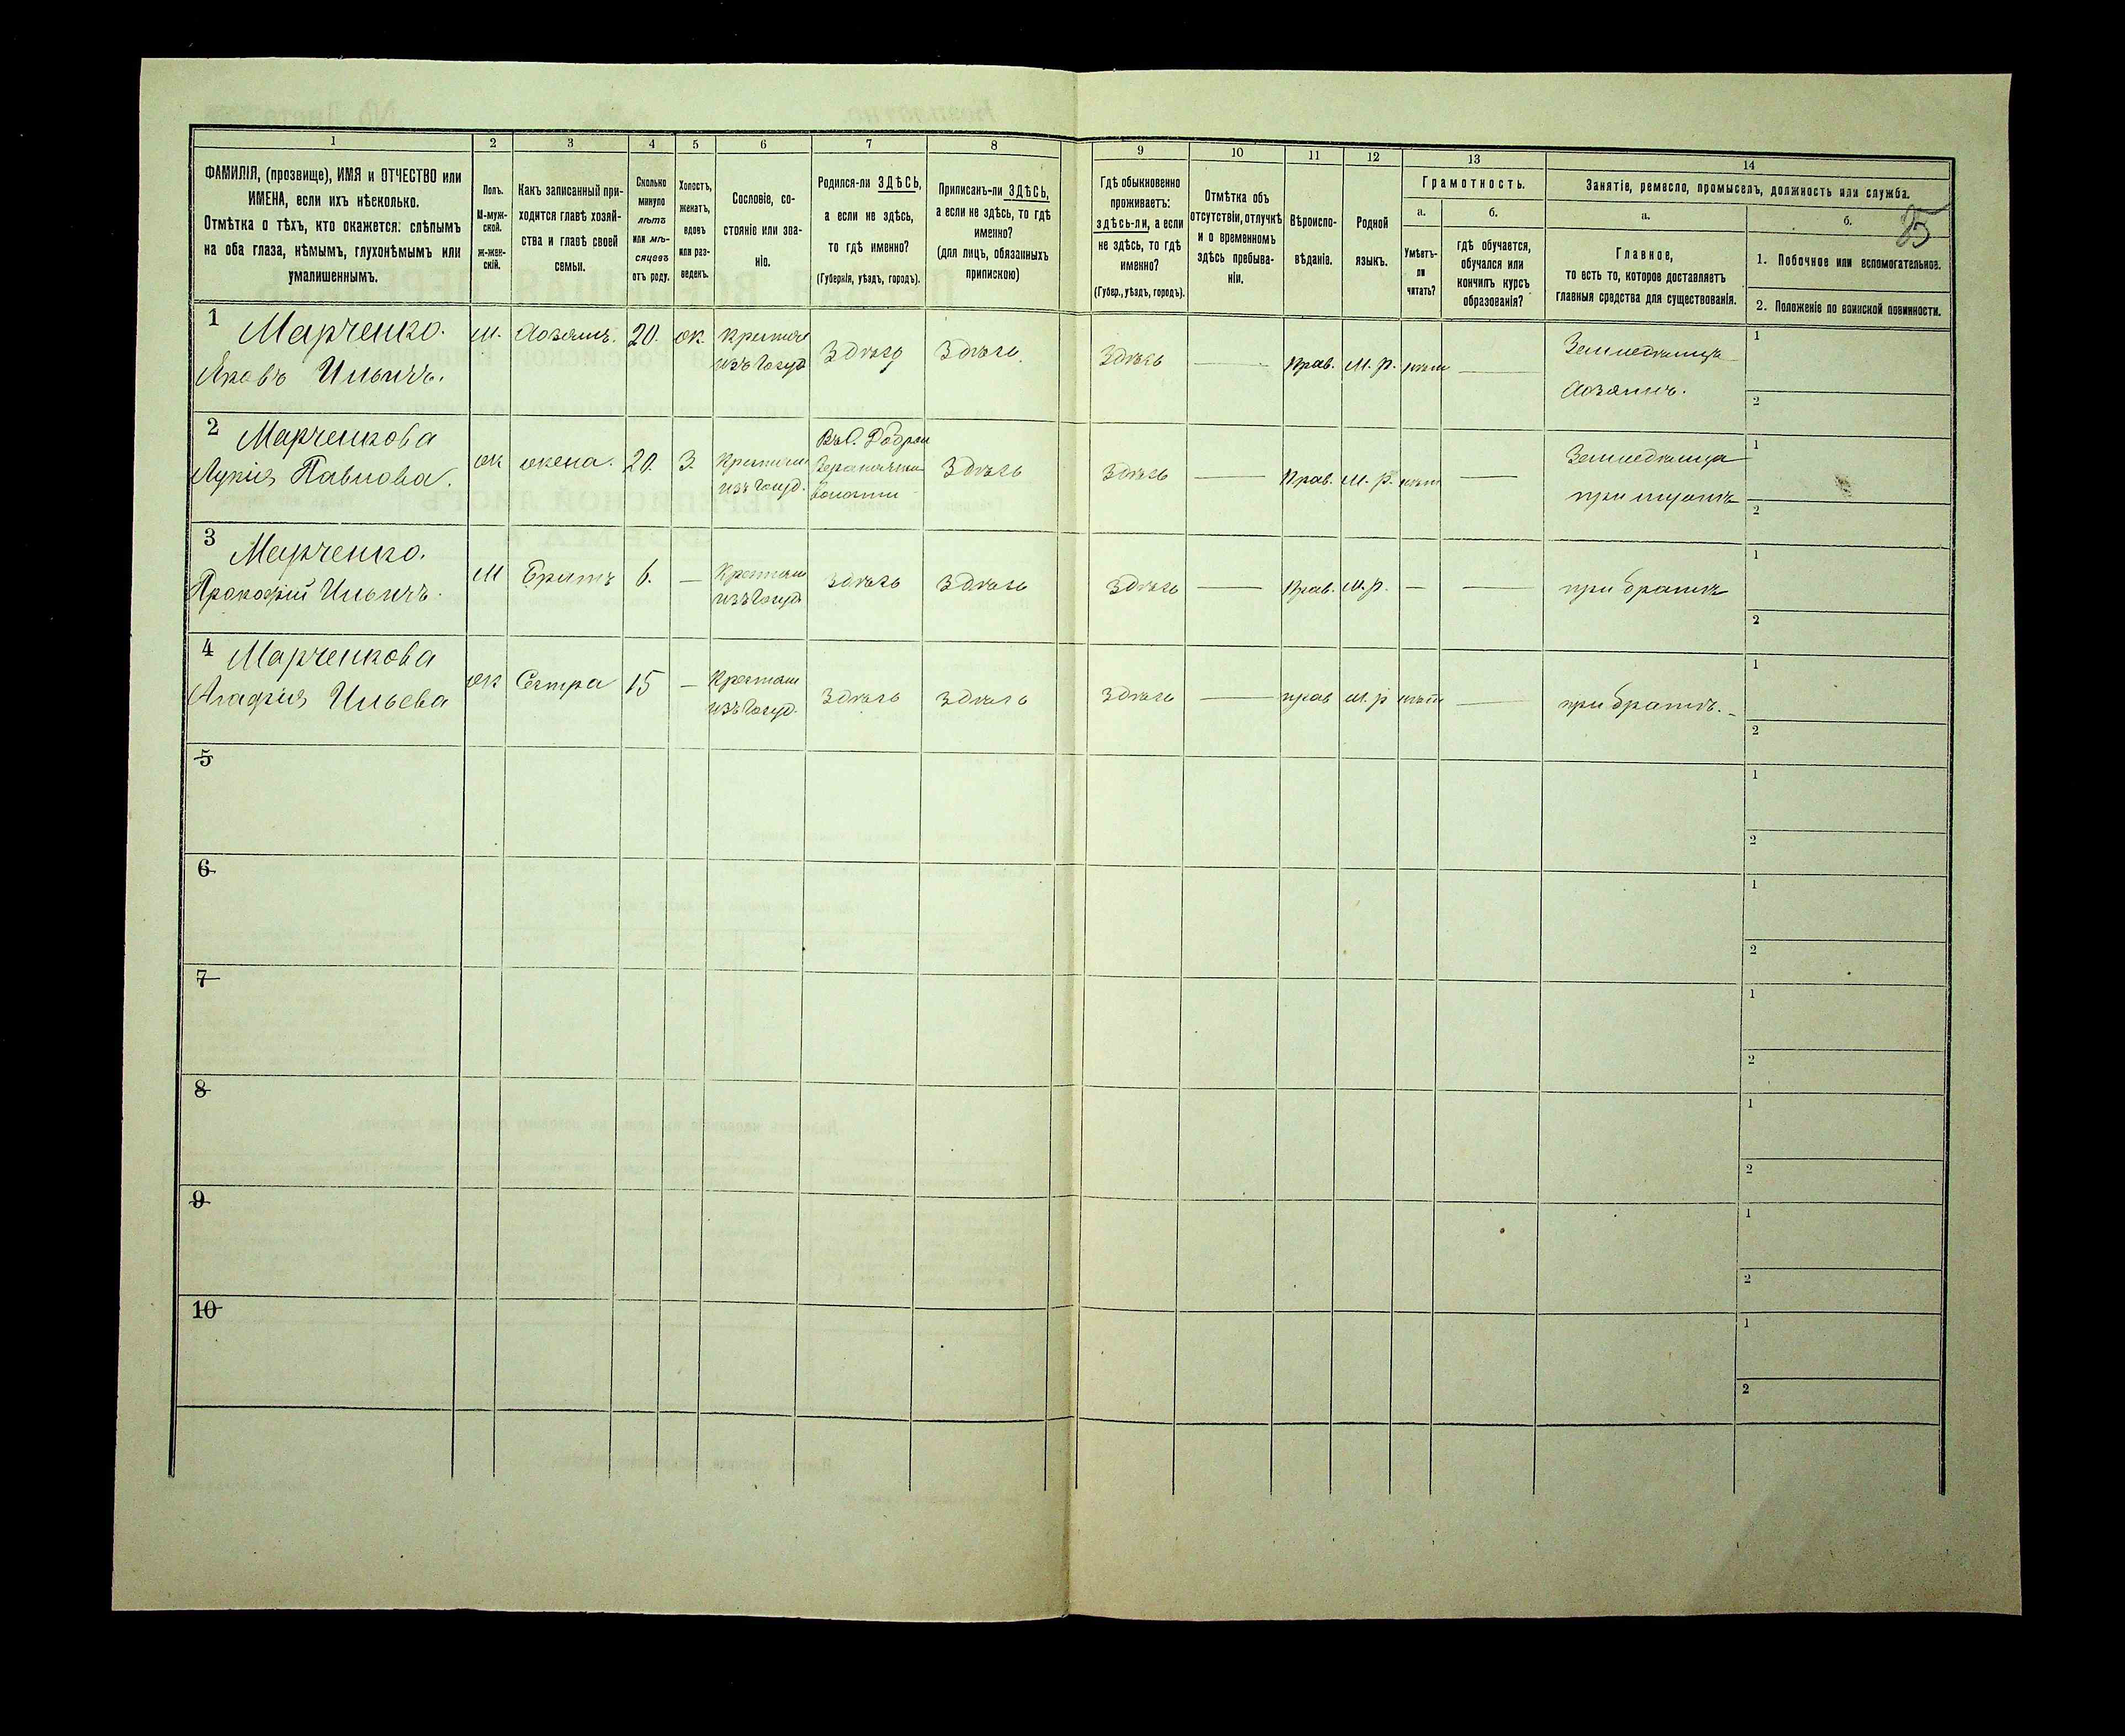 1
2
3
4
5
6
7
8
9
10
11
12
13
14
ФАМИЛІЯ, (прозвище), ИМЯ и ОТЧЕСТВО или
ИМЕНА, если ихъ нѣсколько.
Отмѣтка о тѣхъ, кто окажется: слѣпымъ
на оба глаза, нѣмымъ, глухонѣмымъ или
умалишеннымъ.
Полъ.
М-муж-
ской.
Ж-жен-
скій.
Какъ записанный при-
ходится главѣ хозяй-
ства и главѣ своей
семьи.
Сколько
минуло
лѣтъ
или мѣ-
сяцевъ
отъ роду.
Холостъ,
женатъ,
вдовъ
или раз-
веденъ.
Сословіе, со-
стояніе или зва-
ніе.
Родился-ли ЗДѢСЬ,
а если не здѣсь,
то гдѣ именно?
(Губернія, уѣздъ, городъ).
Приписанъ-ли ЗДѢСЬ,
а если не здѣсь, то гдѣ
именно?
(для лицъ, обязанныхъ
припискою)
Гдѣ обыкновенно
проживаетъ:
здѣсь-ли, а если
не здѣсь, то гдѣ
именно?
(Губер., уѣздъ, городъ).
Отмѣтка объ
отсутствіи, отлучкѣ
и о временномъ
здѣсь пребыва-
ніи.
Вѣроиспо-
вѣданіе.
Родной
языкъ.
Грамотность.
а.
Умѣетъ-
ли
читать?
б.
гдѣ обучается,
обучался или
кончилъ курсъ
образованія?
Занятіе, ремесло, промыселъ, должность или служба.
а.
Главное,
то есть то, которое доставляетъ
главныя средства для существованія.
б.
1. Побочное или вспомогательное.
2. Положеніе по воинской повинности.
1 Марченко.
Яковъ Ильичъ.
М. Хозяинъ. 20. ж.
изъ Госуд
Здѣсь Здѣсь Здѣсь — Прав. М. р. нѣт —
Земледѣлецъ
Хозяинъ.
1
2
2 Марченкова
Лукія Павлова.
ж жена. 20. З.
изъ Госуд.
волости
Здѣсь Здѣсь — Прав. М. р. нѣт —
Земледѣлица
при мужѣ
1
2
3 Марченко.
Прокофій Ильичъ.
М Братъ 6. —
изъ Госуд
Здѣсь Здѣсь Здѣсь — Прав. М. р. — — при братѣ
1
2
4 Марченкова
Агафія Ильева
ж Сестра 15 —
изъ Госуд.
Здѣсь Здѣсь Здѣсь — прав М. р нѣт — при братѣ.
1
2
5
1
2
6
1
2
7
1
2
8
1
2
9
1
2
10
1
2